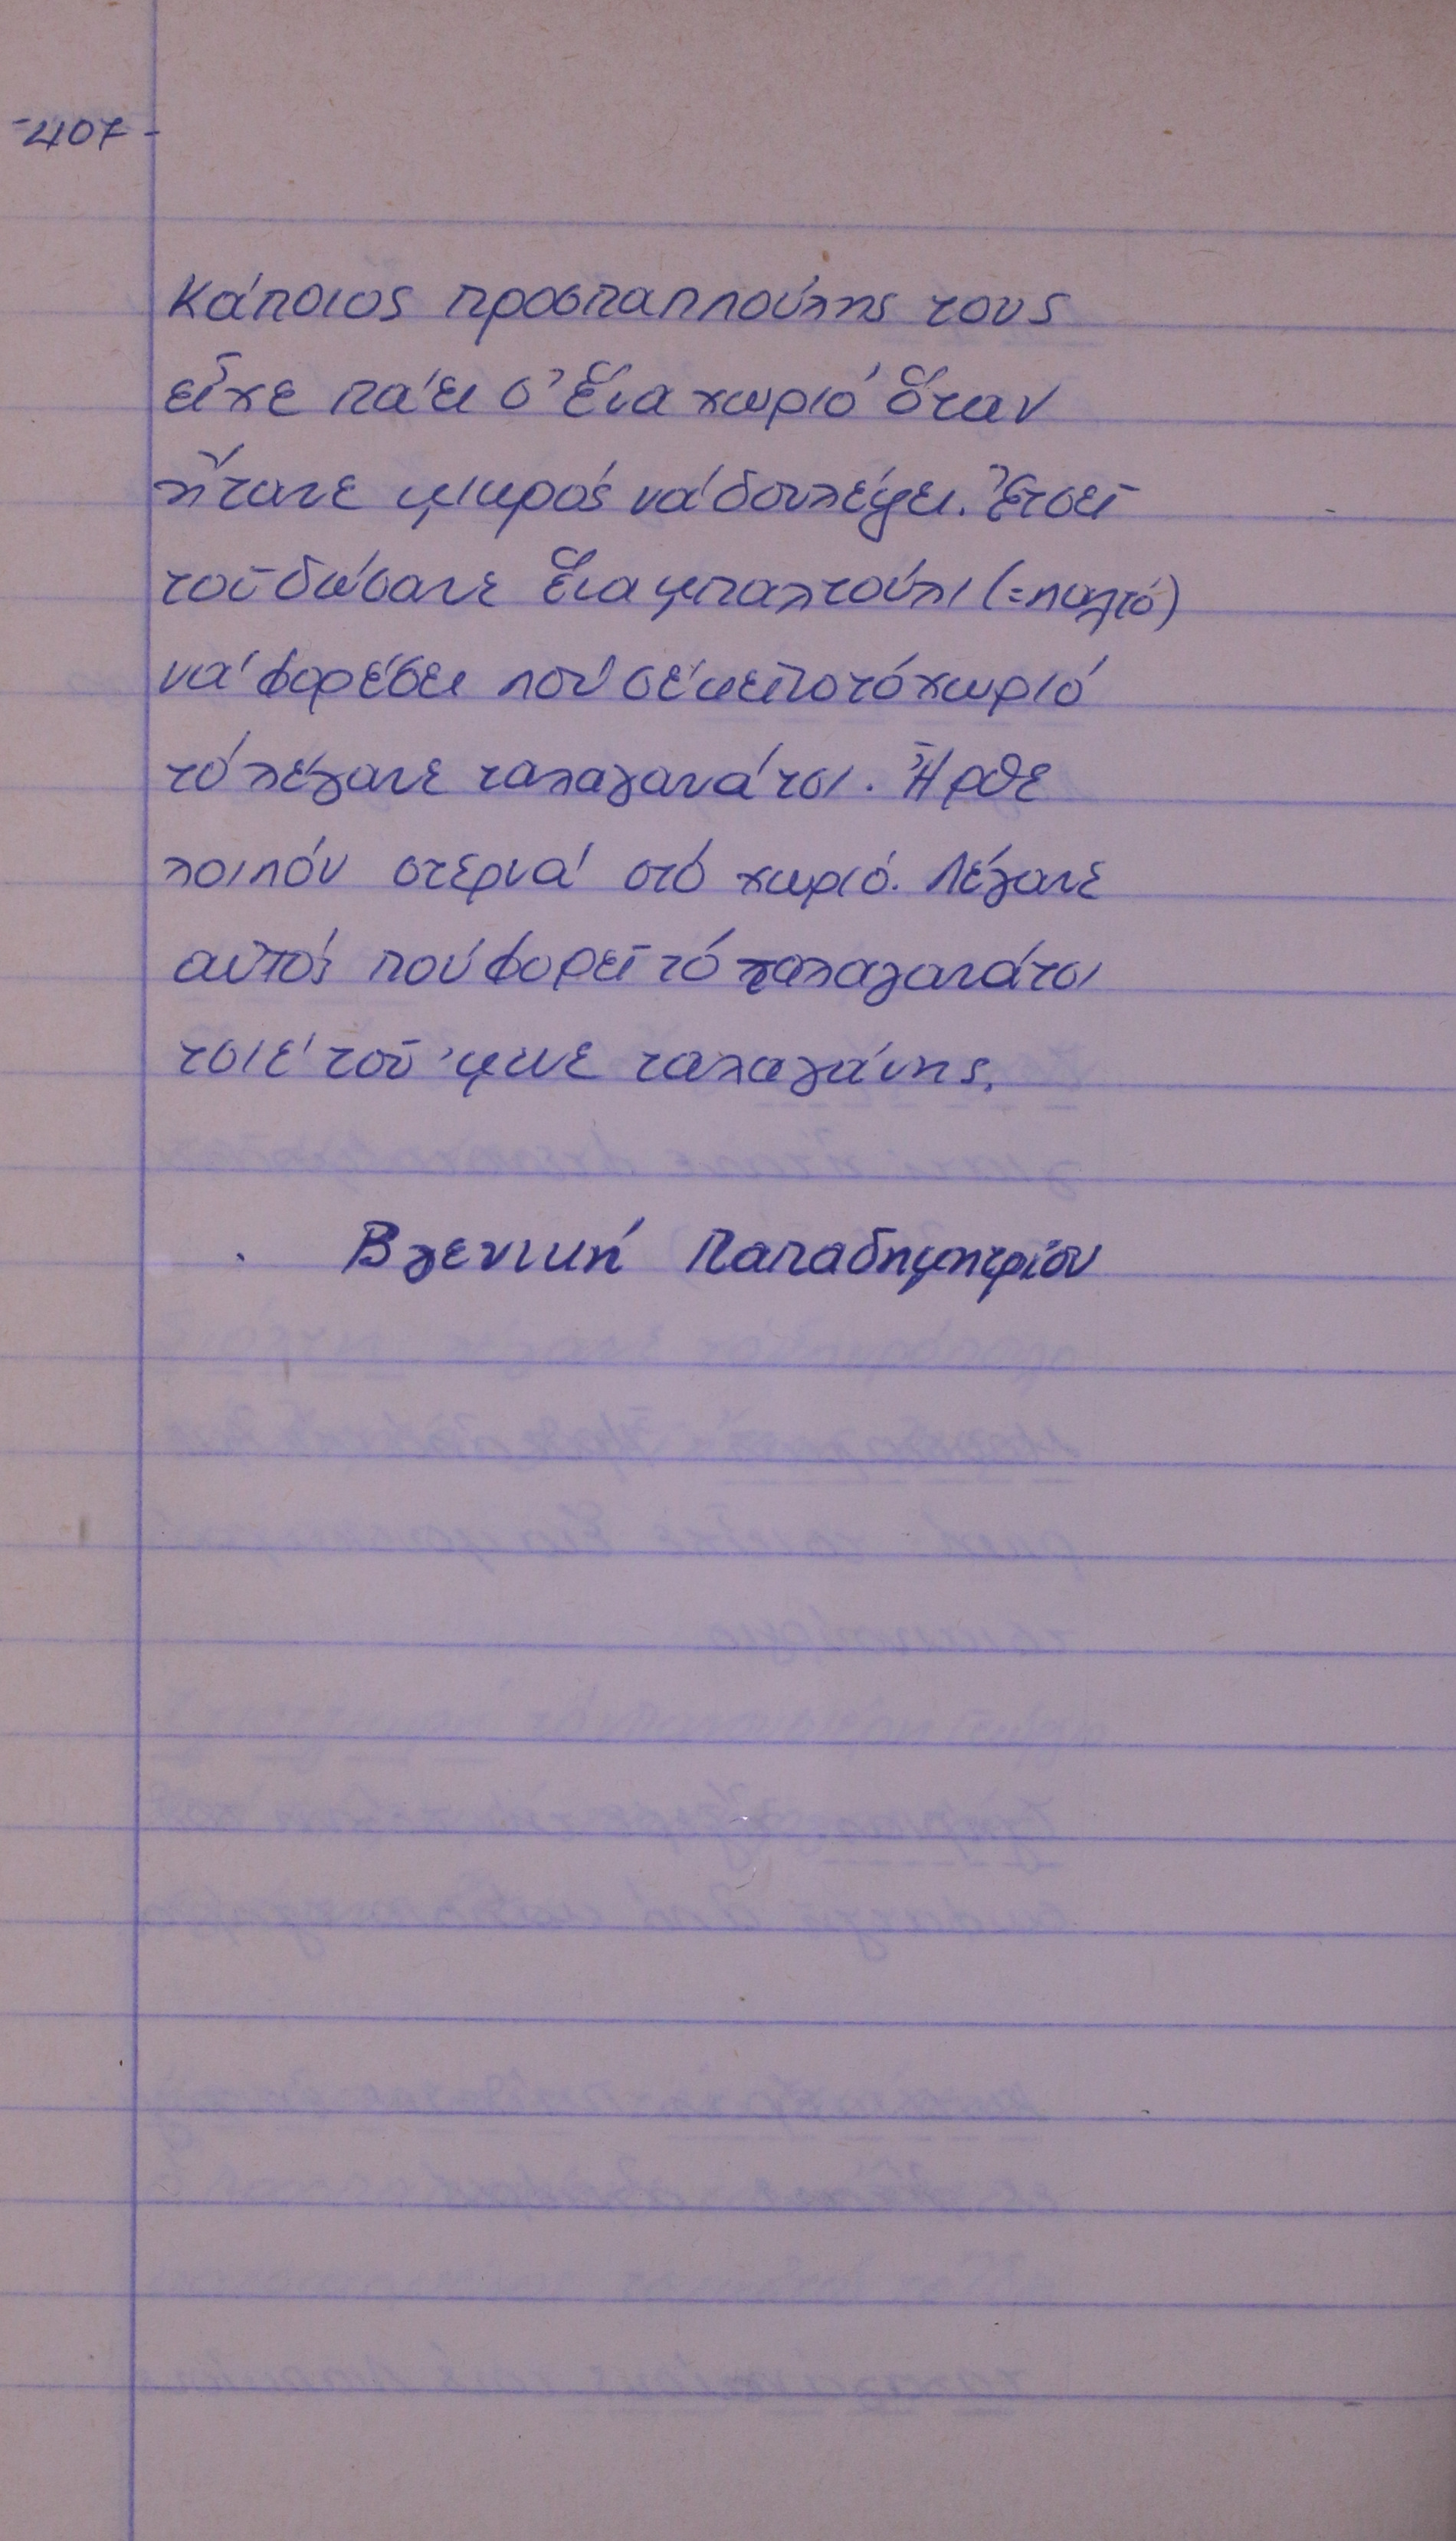 -407-
Κάποιος προσπαππούλης τους
εἶχε πάει σ' ἕνα χωριό ὅταν
ἤτανε μικρός νά δουλέψει. Ἔτσεῖ
τοῦ δώσανε ἕνα μπαλτούλι (=παλτό)
νά φορέσει πού σέ κεῖνο τό χωριό
τό λέγανε ταλαγανάτσι. Ἦρθε
λοιπόν στερνά στό χωριό. Λέγανε
αὐτός πού φορεῖ τό ταλαγανάτσι
τσιέ τοῦ 'μεινε ταλαγάνης.
Βγενική Παπαδημητρίου